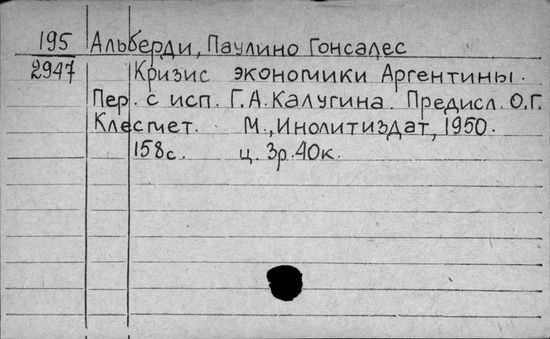 195 Альберди, Паулино Гонсалес
2947 Кризис экономики Аргентины.
Пер. с исп. Г.А.Калугина. Предисл. О.Г.
Клесмет. М., Инолитиздат, 1950.
158с. ц. 3р.40к.